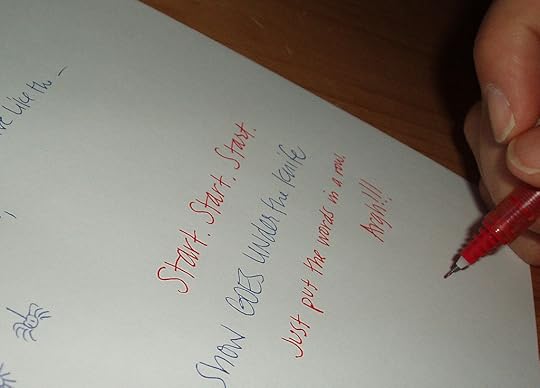 like the –
Start. Start. Start.
Show GOES under the knife
Just put the words in a row.
Argh!!!